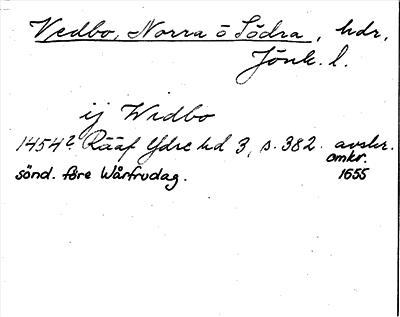 Vedbo, Norra o Södra, hdr,
Jönk. l.
ij Widbo
1454? Rääf Ydre hd 3, s. 382. avskr.
omkr.
sönd. före Wårfrudag. 1655